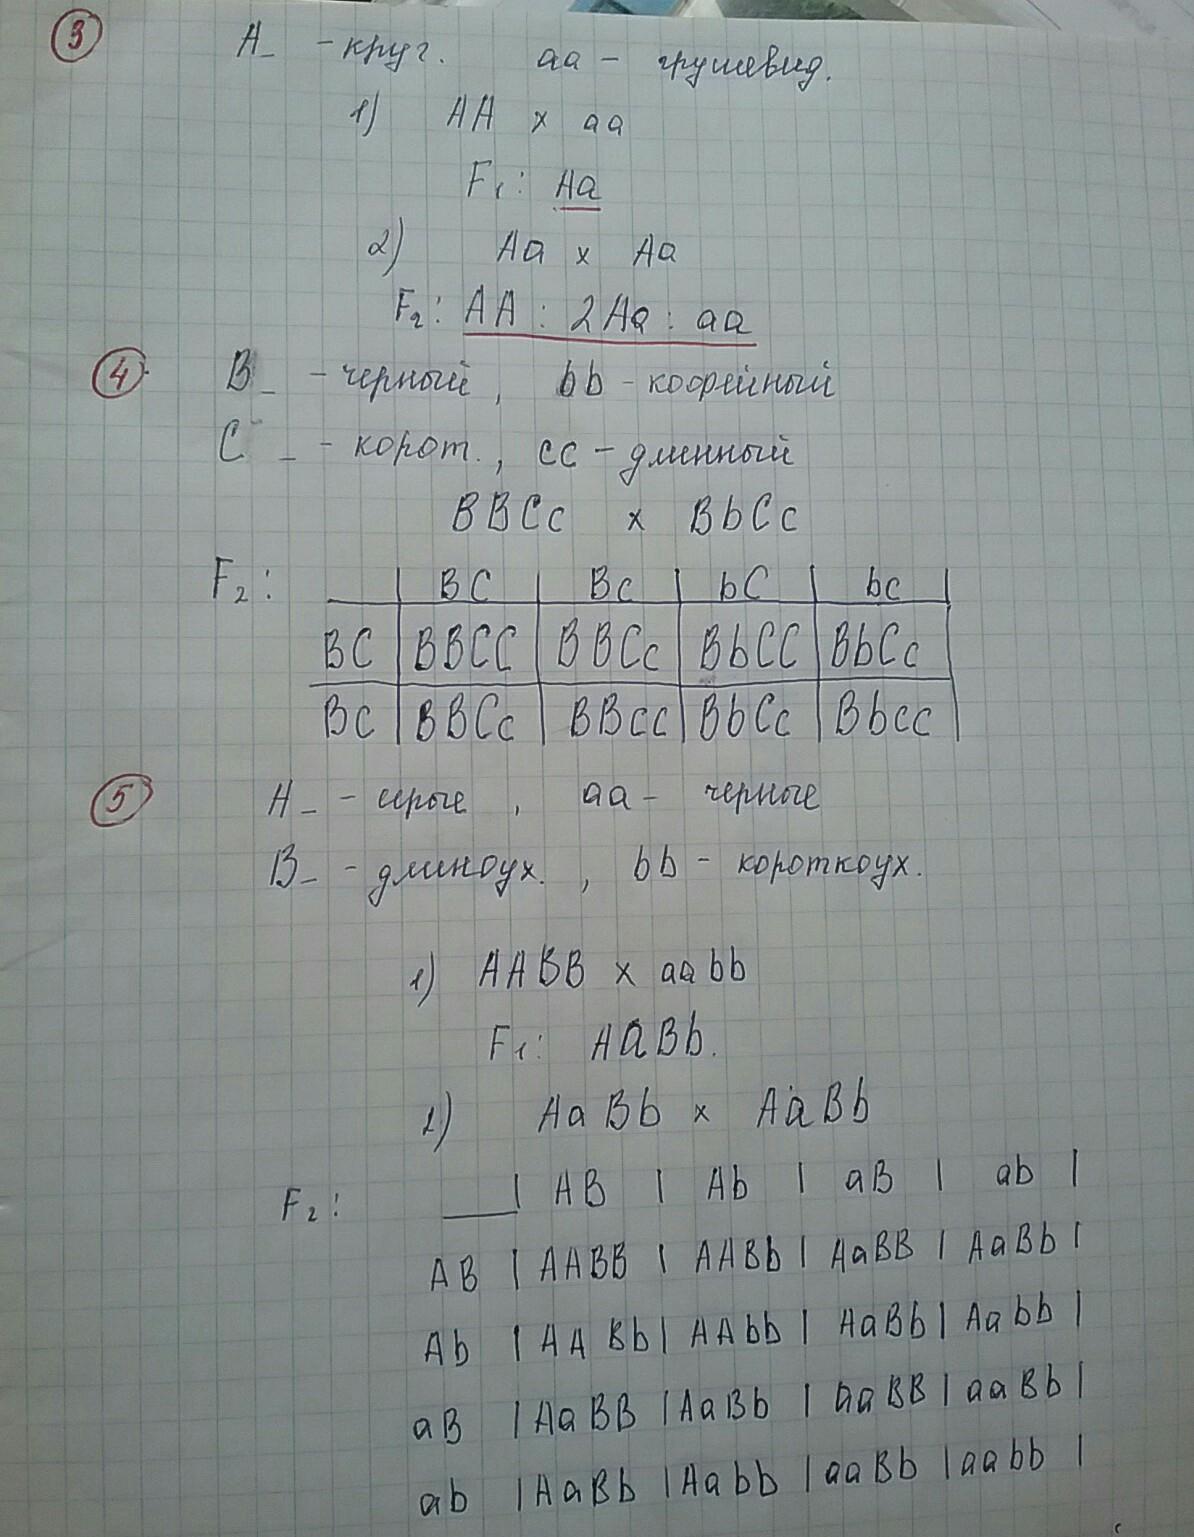 3 A_ - круг. аа - грушевид.
1) АА х аа
F1: Аа
2) Аа х Аа
F2: АА : 2Аа : аа
4 B_ - черный, bb - кофейный
C_ - корот., cc - длинный
BBCc x BbCc
F2: | BC | Bc | bC | bc |
BC | BBCC | BBCc | BbCC | BbCc
Bc | BBCc | BBcc | BbCc | Bbcc
5 A_ - серые, aa - черные
B_ - длиноух., bb - короткоух.
1) AABB x aabb
F1: AaBb.
2) AaBb x AaBb
F2: | AB | Ab | aB | ab |
AB | AABB | AABb | AaBB | AaBb |
Ab | AABb | AAbb | AaBb | Aabb |
aB | AaBB | AaBb | aaBB | aaBb |
ab | AaBb | Aabb | aaBb | aabb |